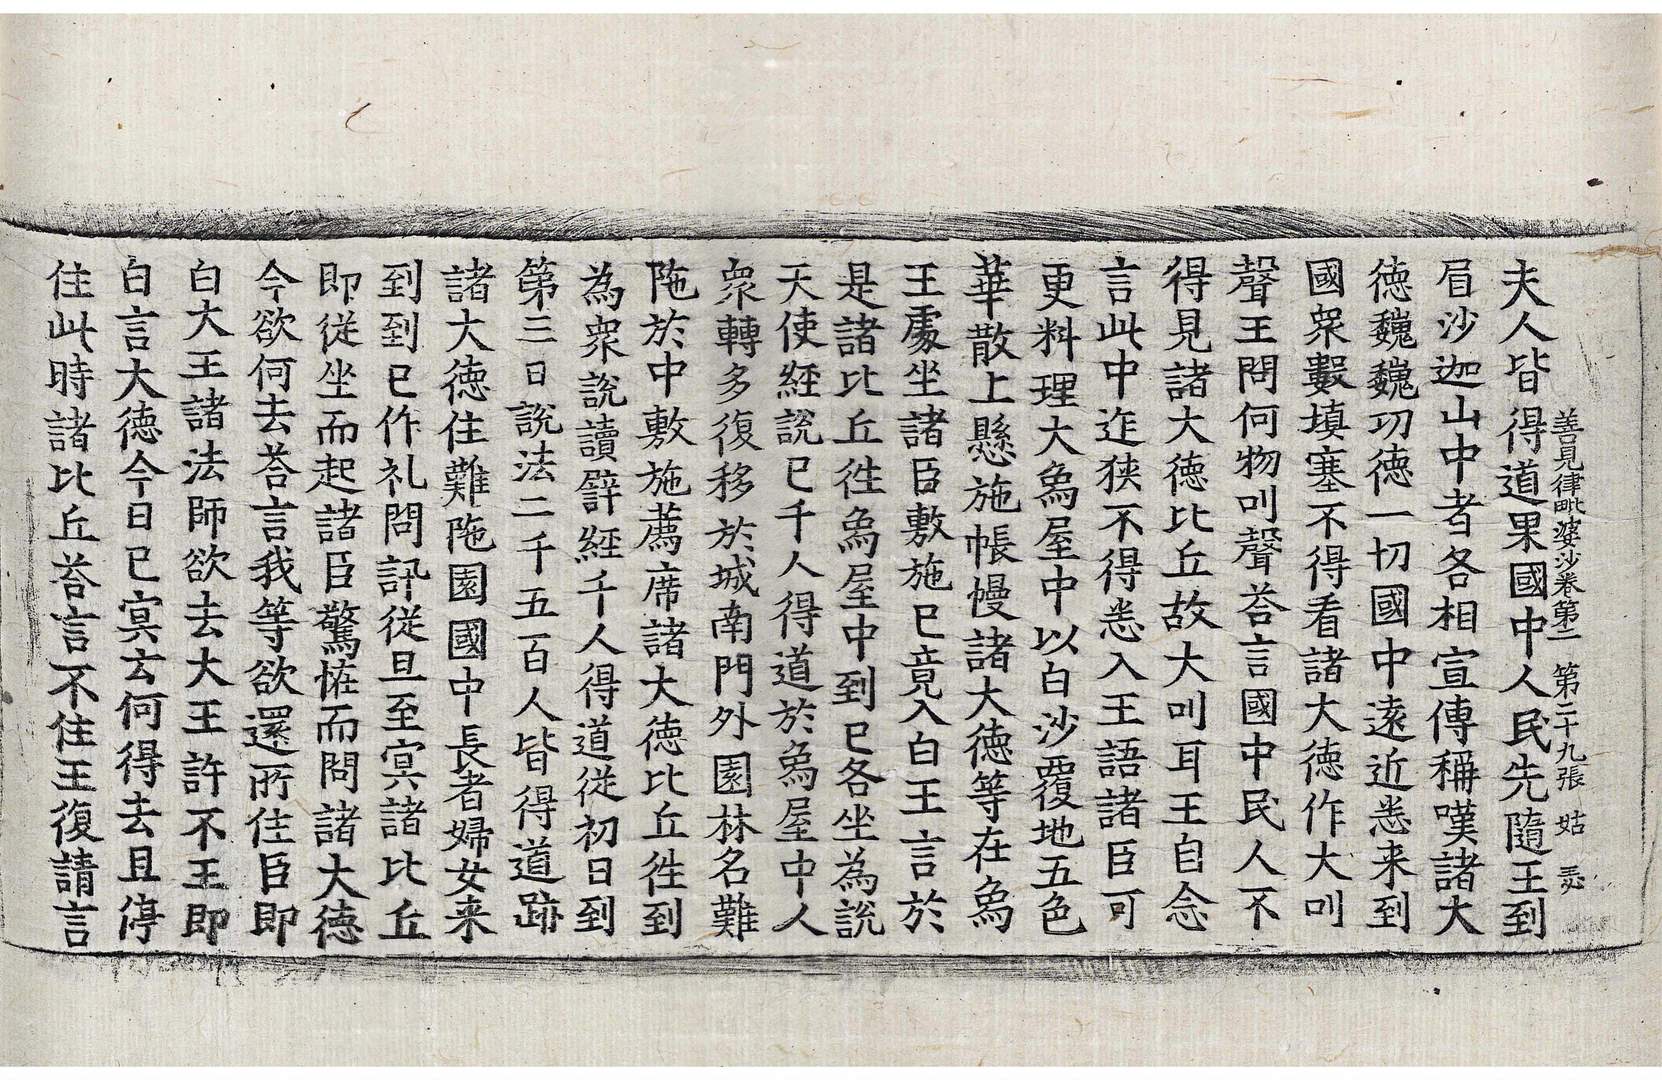 善見律毗婆沙卷第二　第二十九張　姑
夫人皆得道果國中人民先隨王到
眉沙迦山中者各相宣傳稱嘆諸大
德巍巍功德一切國中遠近悉来到
國衆數填塞不得看諸大德作大叫
聲王問何物叫聲荅言國中民人不
得見諸大德比丘故大叫耳王自念
言此中迮狹不得悉入王語諸臣可
更料理大烏屋中以白沙覆地五色
華散上懸施帳幔諸大德等在烏
王處坐諸臣敷施已竟入白王言於
是諸比丘徃烏屋中到已各坐為說
天使経說已千人得道於烏屋中人
衆轉多復移於城南門外園林名難
陁於中敷施薦席諸大德比丘徃到
為衆說讀譬経千人得道從初日到
第三日說法二千五百人皆得道跡
諸大德住難陁園國中長者婦女来
到到已作礼問訊從旦至冥諸比丘
即從坐而起諸臣驚恠而問諸大德
今欲何去荅言我等欲還所住臣即
白大王諸法師欲去大王許不王即
白言大德今日已冥云何得去且停
住此時諸比丘荅言不住王復請言